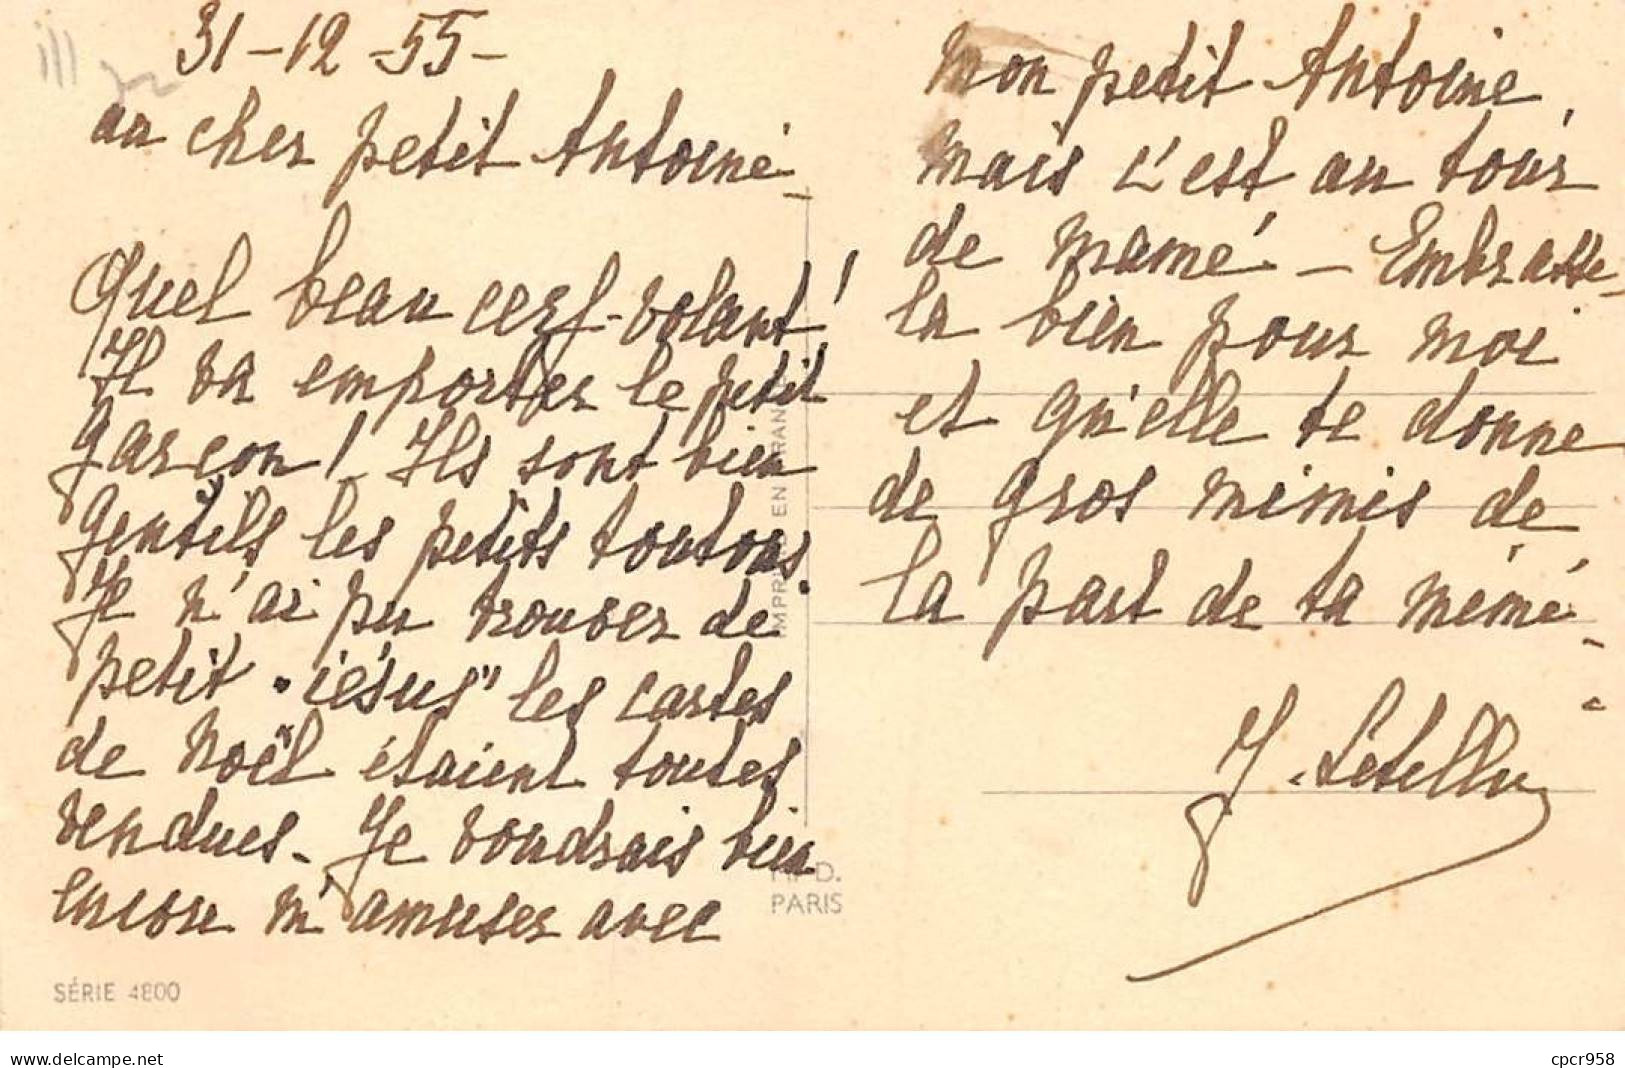 31-12-55-
au cher petit Antoine_
Quel beau cerf-volant !
Il va emporter le petit
garçon ! Ils sont bien
gentils les petits toutous.
Je n'ai pu trouver de
petit "jésus" les cartes
de Noël étaient toutes
vendues - Je voudrais bien
encore m'amuser avec
mon petit Antoine,
mais c'est au tour
de mamé - Embrasse
la bien pour moi
et qu'elle te donne
de gros mimis de
la part de ta mémé -
J. Letellier
IMPRIMÉ EN FRANCE
M. D.
PARIS
SÉRIE 4800
delcampe.net
cpcr958